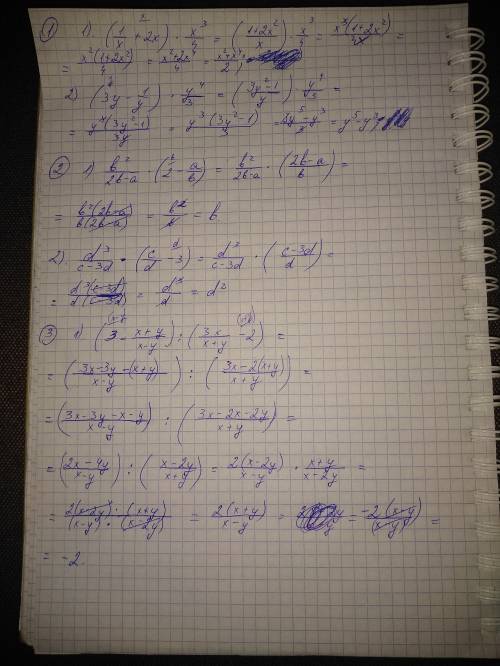 ① 1). (1/x + 2x) · x³/4 = ((1+2x²)/x) · x³/4 = x³(1+2x²)/4x =
= x²(1+2x²)/4 = x²+2x⁴/4 =
2) (3y - 1/y) · y⁴/3 = ((3y²-1)/y) · y⁴/3 =
= y⁴(3y²-1)/3y = y³(3y²-1)/3 = 3y⁵-y³/3 = y⁵-y³
② 1) b²/(2b-a) · (2 - a/b) = b²/(2b-a) · ((2b-a)/b) =
= b²(2b-a)/b(2b-a) = b²/b = b
2). d³/(c-3d) · (c/d - 3) = d³/(c-3d) · ((c-3d)/d) =
= d³(c-3d)/d(c-3d) = d³/d = d²
③ 1) (3 - (x+y)/(x-y)) : (3x/(x+y) - 2) =
= ((3x-3y-(x+y))/(x-y)) : ((3x-2(x+y))/(x+y)) =
= ((3x-3y-x-y)/(x-y)) : ((3x-2x-2y)/(x+y)) =
= ((2x-4y)/(x-y)) : ((x-2y)/(x+y)) = 2(x-2y)/(x-y) · (x+y)/(x-2y) =
= 2(x-2y)·(x+y)/(x-y)·(x-2y) = 2(x+y)/(x-y) = = -2(x-y)/(x-y) =
= -2.